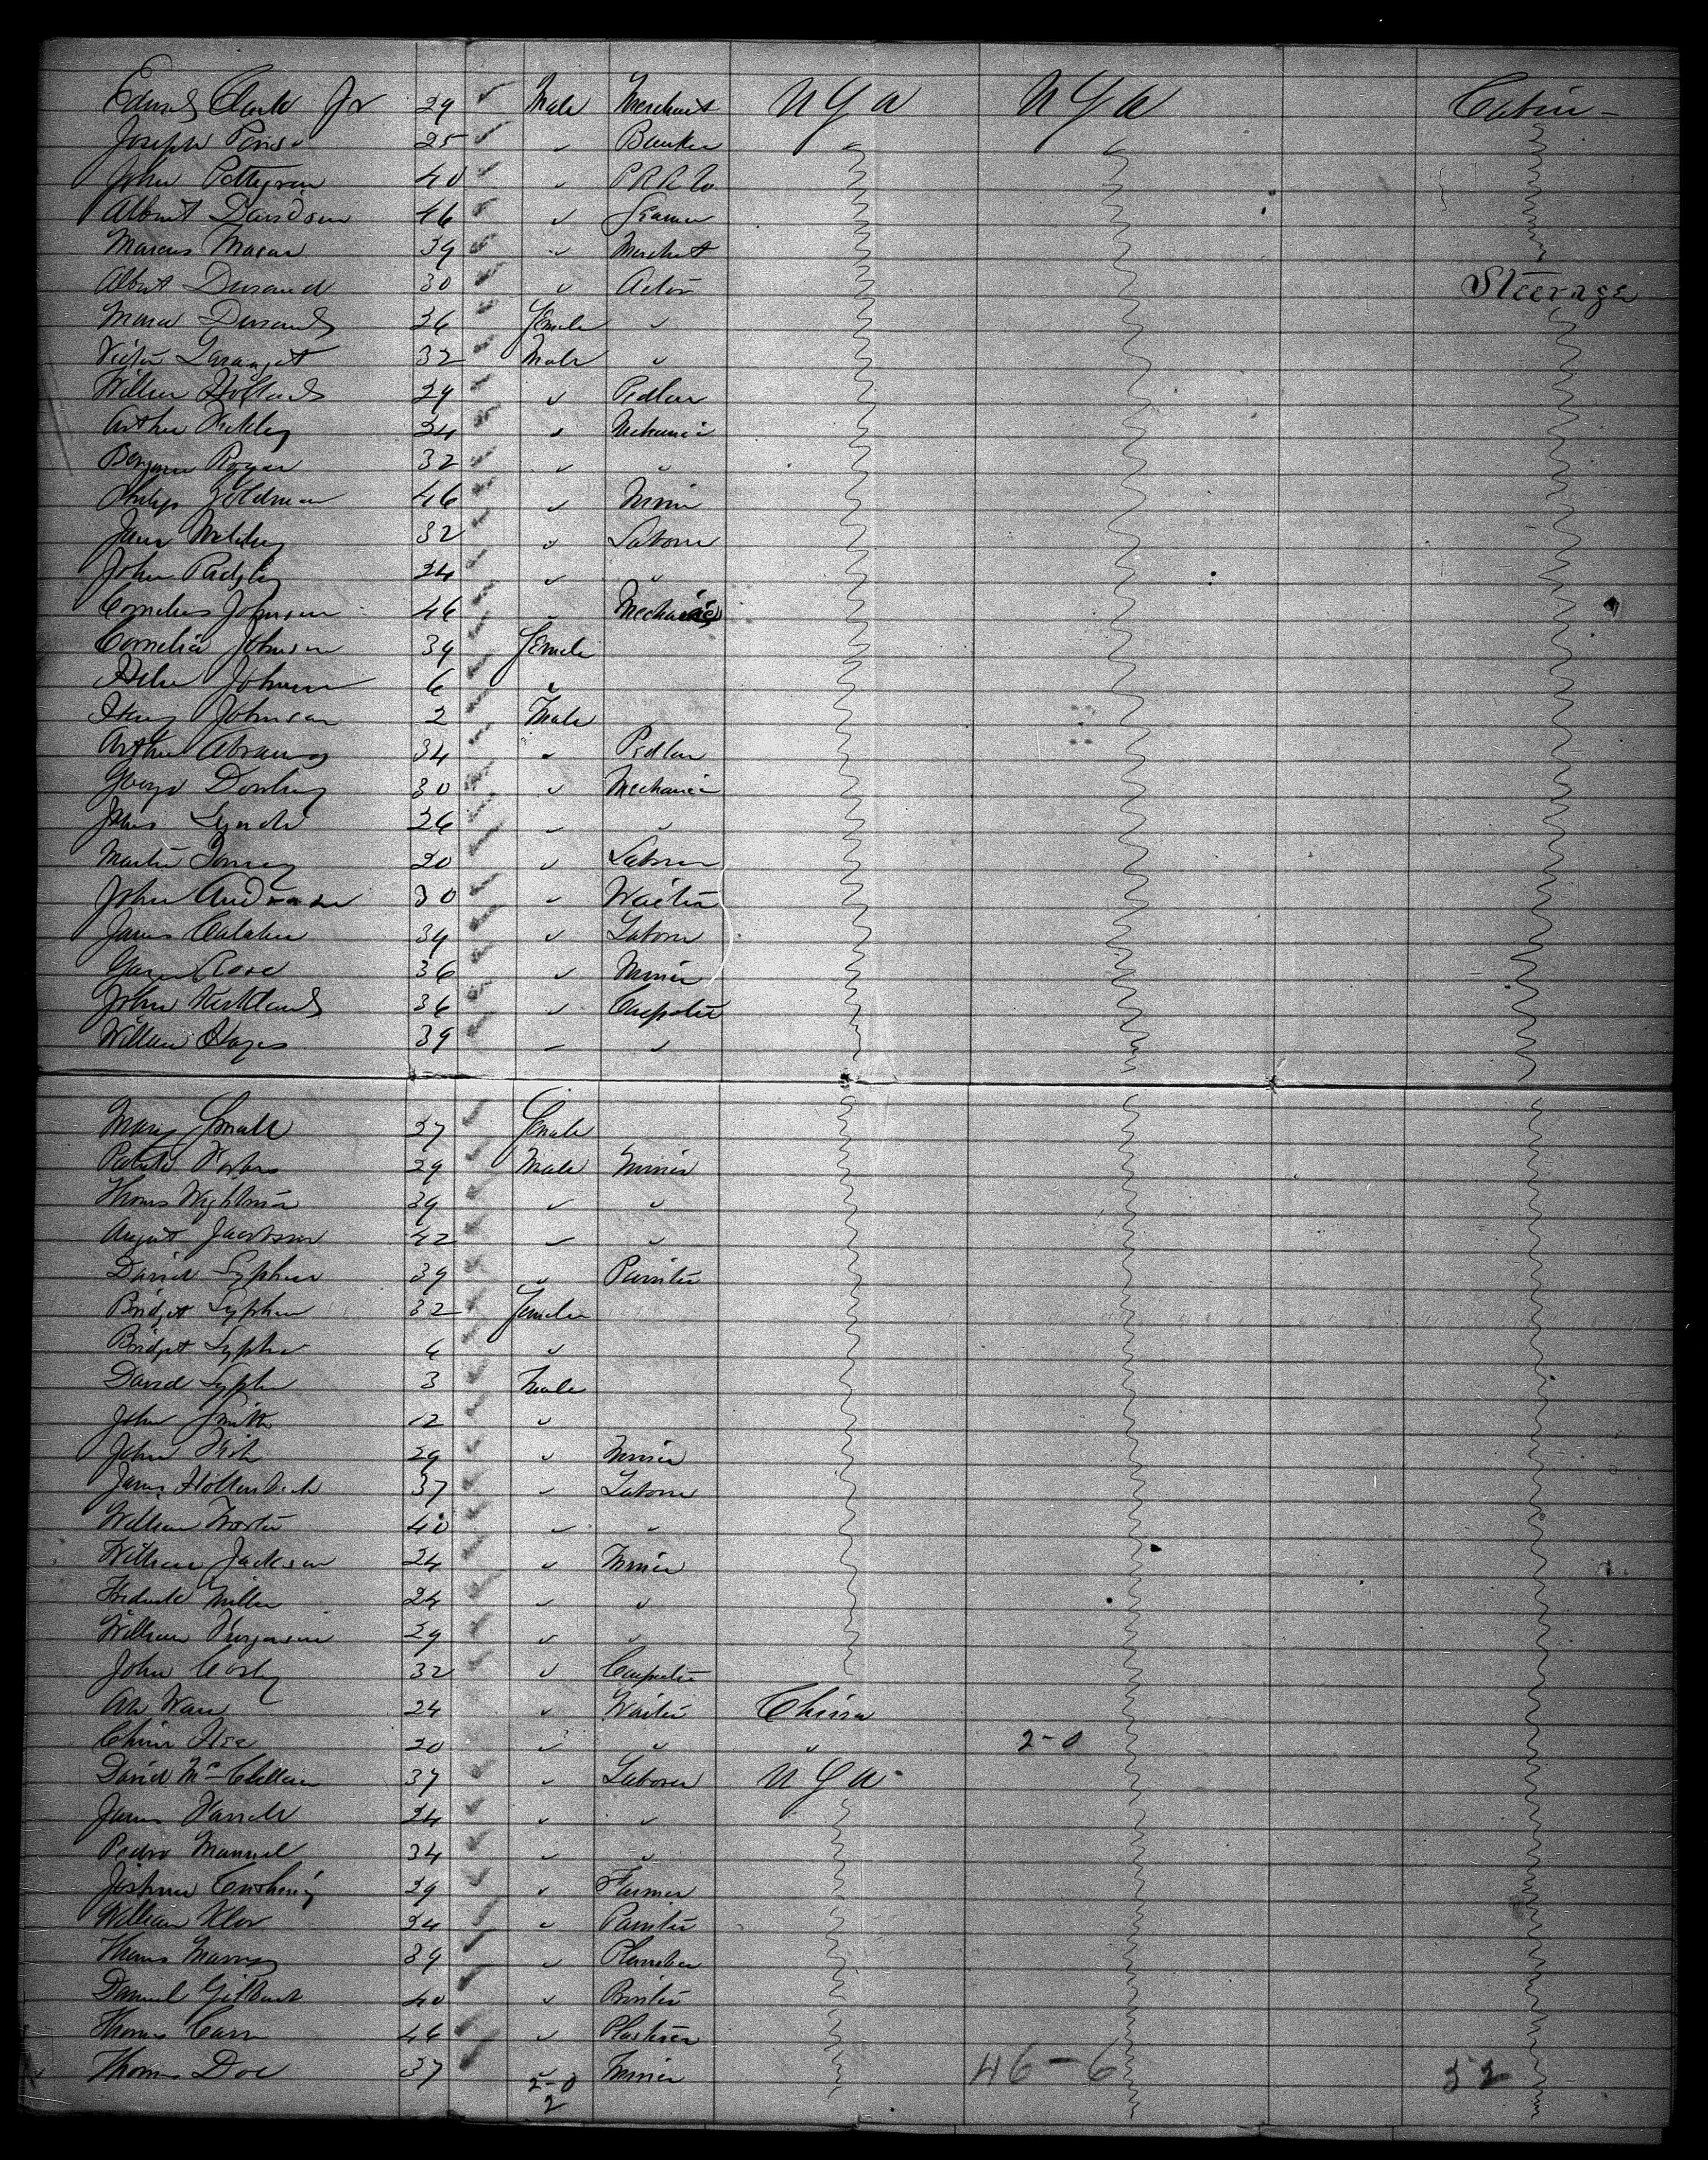 Edward Clark Jr 29 ✓ Male Merchant U S A U S A Cabin -
Joseph 25 ✓ " Banker "
John Pettigrew 40 ✓ " P R R Co
Albert Davidson 46 ✓ "
Marcus 39 ✓ " Merchant
Albert Durand 30 ✓ " Actor Steerage
Maria Durand 26 ✓ Female "
Victor 32 ✓ Male "
William Holland 29 ✓ " Pedlar
Arthur 24 ✓ " Mechanic
Benjamin 32 ✓ " "
Philip Goldman 46 ✓ " Miner
32 ✓ " Laborer
John 24 ✓ " "
Cornelius Johnson 46 ✓ " Mechanic
Cornelia Johnson 39 ✓ Female
Johnson 6 ✓ "
Henry Johnson 2 ✓ Male
Arthur Abrams 34 ✓ " Pedlar
George 30 ✓ " Mechanic
Lynch 26 ✓ " "
Martin 20 ✓ " Laborer
John Anderson 30 ✓ " Waiter
James 39 ✓ " Laborer
Rose 36 ✓ " Miner
John Kirkland 36 ✓ " Carpenter
William Hayes 39 ✓ " "
Mary Small 27 ✓ Female
29 ✓ Male Miner
Thomas Wightman 39 ✓ " "
August Jacobson 42 ✓ " "
David Syphen 39 ✓ " Painter
Bridget Syphen 32 ✓ Female
Bridget Syphen 6 ✓ "
David Syphen 3 ✓ Male
John Smith 12 ✓ "
John 29 ✓ " Miner
James Hollenbeck 37 ✓ " Laborer
William 40 ✓ " "
William Jackson 24 ✓ " Miner
Frederick Miller 24 ✓ " "
William Furgason 29 ✓ " "
John 32 ✓ " Carpenter
Ah Wau 24 " Waiter China
Hee 20 " " " 2-0
David McClellan 37 ✓ " Laborer U S A
James Farrell 24 ✓ " "
Pedro Manuel 34 ✓ " "
Joshua Cushing 29 ✓ " Farmer
William 24 ✓ " Painter
Thomas Murray 39 ✓ " Plumber
Daniel Gilbert 40 ✓ " Printer
Thomas Carr 46 ✓ " Plasterer
Thomas Doe 37 ✓ " Miner 46-6 52
2-0
2